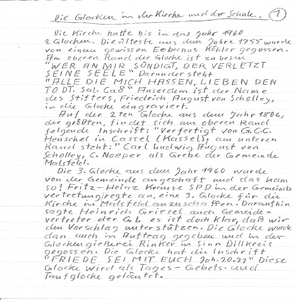 Die Glocken in der Kirche und der Schule. 1
Die Kirche hatte bis in das Jahr 1960
2 Glocken. Die älteste aus dem Jahr 1755 wurde
von einem gewissen Eberhard Köhler gegossen.
Am oberen Rand der Glocke ist zu lesen:
"WER AN MIR SÜNDIGT, DER VERLETZT
SEINE SEELE" Darunter steht
"ALLE DIE MICH HASSEN, LIEBEN DEN
TODT. Sal. Ca8" Auserdem ist der Name
des Stifters, Friedrich August von Scholley,
in die Glocke eingraviert.
Auf der 2ten Glocke aus dem Jahr 1806,
der größten, findet sich am oberen Rand
folgende Inschrift: "Verfertigt von G.C.C.
Henschel in Cassel (Kassel), am unteren
Rand steht: "Carl Ludwig August von
Scholley, C. Noeper als Grebe der Gemeinde
Malsfeld.
Die 3. Glocke aus dem Jahr 1960 wurde
von der Gemeinde angeschaft und das kam
so! Fritz-Heinz Kunze SPD in der Gemeinde
vertretung regte an, eine 3. Glocke für die
Kirche in Malsfeld anzuschaffen. Daraufhin
sagte Heinrich Griesel auch Gemeinde-
vertreter der GL es ist doch klar, daß wir
den Vorschlag unterstützen. Die Glocke wurde
dan auch in Auftrag gegeben und in der
Glockengießerei Rinker in Sinn Dillkreis
gegossen. Die Glocke hat die Inschrift
"FRIEDE SEI MIT EUCH Joh. 20.21" Diese
Glocke wird als Tages- Gebets- und
Taufglocke geläutet.